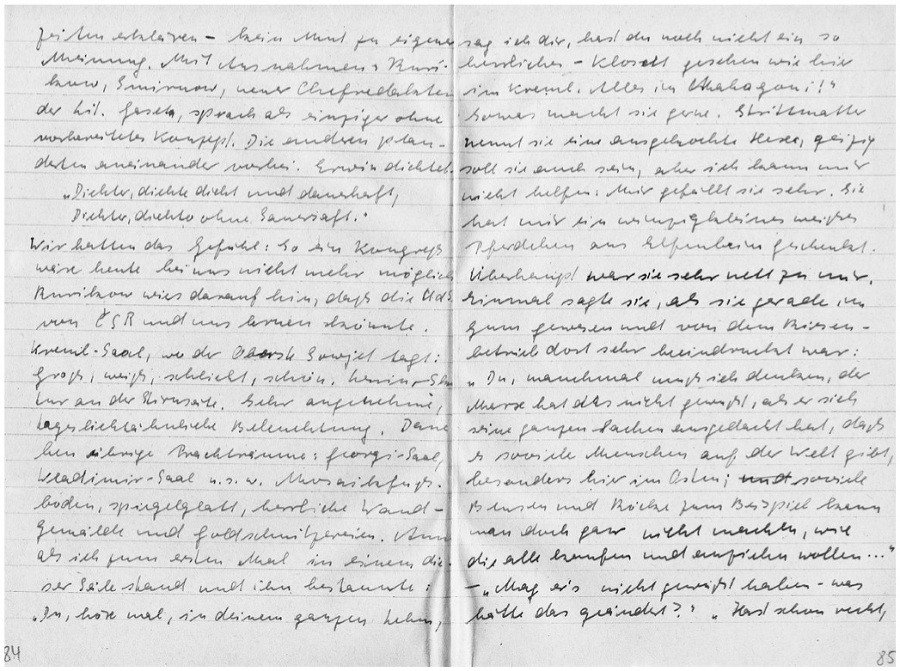 zeiten erklären – kein Mut zu eigener
Meinung. Mit Ausnahmen: Ruri-
kow, Smirnow, neuer Chefredakteur
der Lit. Gaseta, sprach als einziger ohne
vorbereitetes Konzept. Die anderen plau-
derten aneinander vorbei. Erwin dichtet:
„Dichter, dichte dicht und dauerhaft,
Dichter, dichte ohne Sauersaft."
Wir hatten das Gefühl: So ein Kongreß
wäre heute bei uns nicht mehr möglich
Rurikow wies darauf hin, daß die UdS
von ČSR und uns lernen könnte.
Kreml-Saal, wo der Oberste Sowjet tagt:
Groß, weiß, schlicht, schön. Lenin-
tur an der Stirnseite. Sehr angenehme,
tageslichtähnliche Beleuchtung. Dane
ben übrige Prachträume: Georgi-Saal,
Wladimir-Saal u.s.w. Mosaikfuß-
boden, spiegelglatt, herrliche Wand-
gemälde und Goldschnitzereien. Anna
als ich zum ersten Mal in einem die-
ser Säle stand und ihn bestaunte:
„Du, hör mal, in deinem ganzen Leben,
84
sag ich dir, hast du noch nicht ein so
herrliches – Klosett gesehen wie hier
im Kreml. Alles in Mahagoni!"
Sowas macht sie gerne. Strittmatter
nennt sie eine ausgekochte Hexe, geizig
soll sie auch sein, aber ich kann mir
nicht helfen: Mir gefällt sie sehr. Sie
hat mir ein winzigkleines weißes
Pferdchen aus Elfenbein geschenkt.
Überhaupt war sie sehr nett zu mir.
Einmal sagte sie, als sie gerade im
Gum gewesen und von dem Riesen-
betrieb dort sehr beeindruckt war:
„Du, manchmal muß ich denken, der
Marx hat das nicht gewußt, als er sich
seine ganzen Sachen ausgedacht hat, daß
es soviele Menschen auf der Welt gibt,
besonders hier im Osten; und soviele
Blusen und Röcke zum Beispiel kann
man doch gar nicht machen, wie
die alle kaufen und anziehen wollen..."
– „Mag er's nicht gewußt haben – was
hätte das geändert?" „Hast schon recht,
85